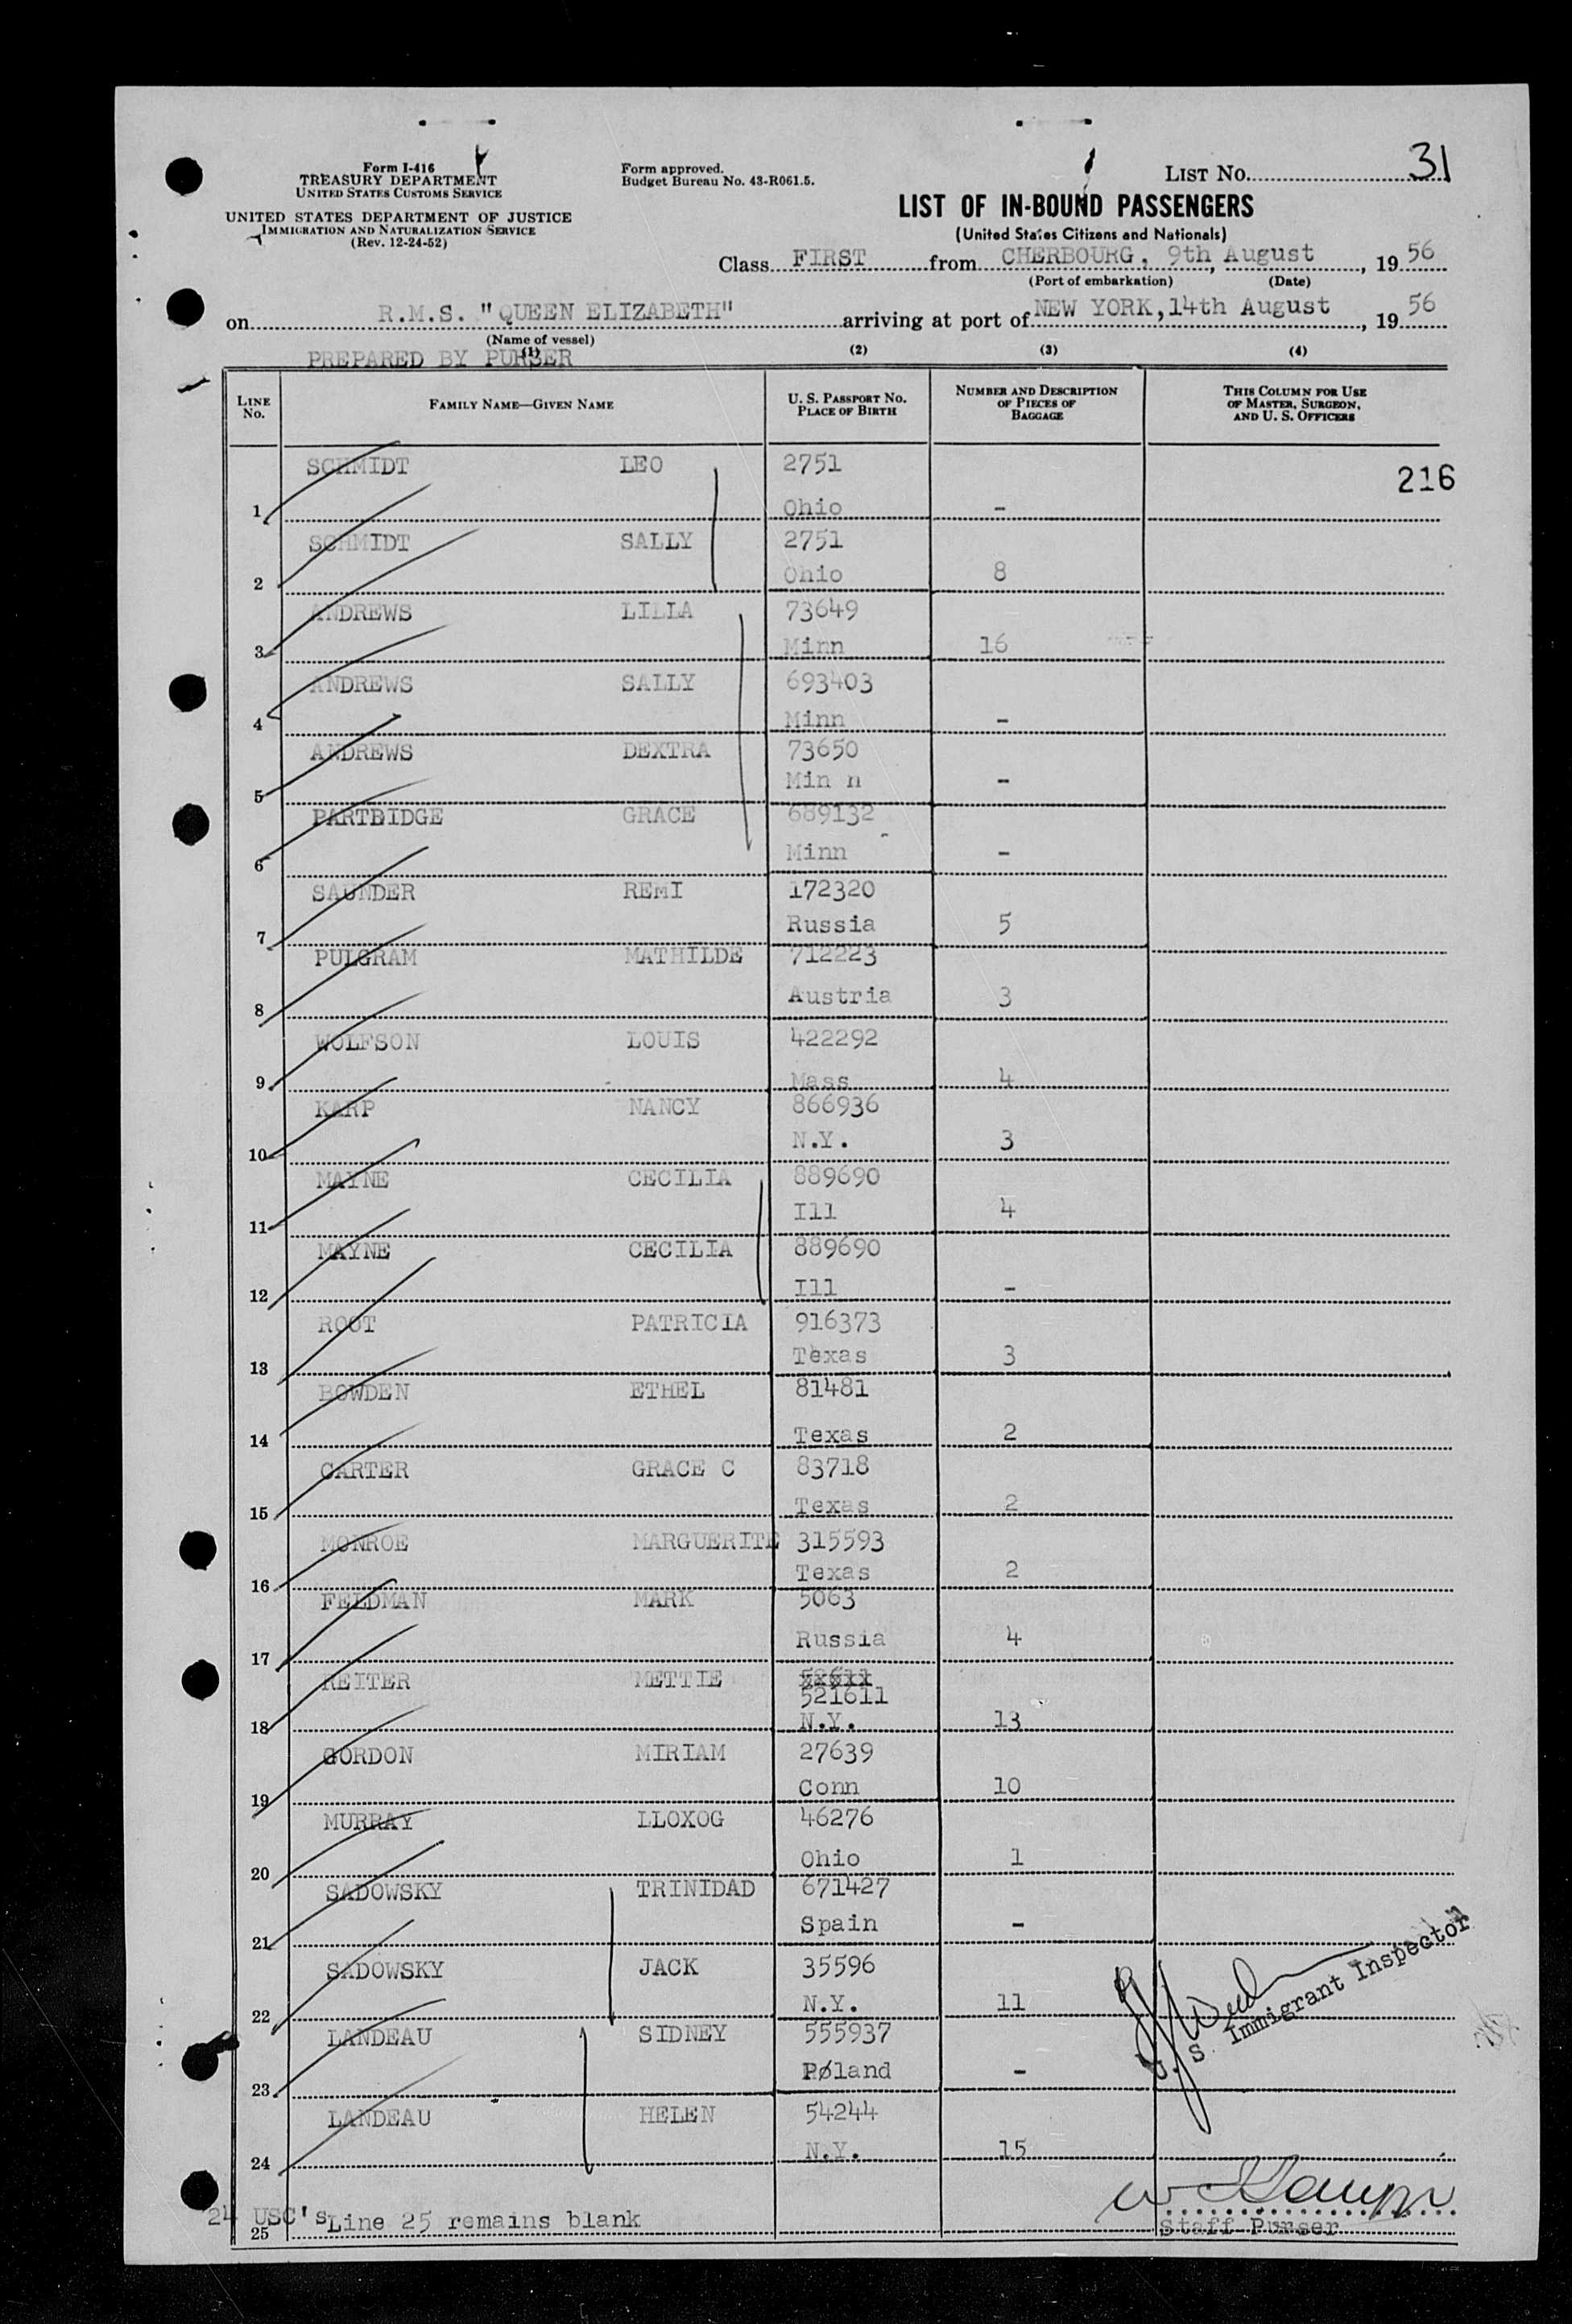 Form I-416
TREASURY DEPARTMENT
UNITED STATES CUSTOMS SERVICE
UNITED STATES DEPARTMENT OF JUSTICE
IMMIGRATION AND NATURALIZATION SERVICE
(Rev. 12-24-52)
Form approved.
Budget Bureau No. 43-R061.5.
LIST No. 31
LIST OF IN-BOUND PASSENGERS
(United States Citizens and Nationals)
Class FIRST from CHERBOURG, 9th, August, 19 56
(Port of embarkation) (Date)
on R.M.S. "QUEEN ELIZABETH" arriving at port of NEW YORK, 14th August, 19 56
(Name of vessel)
PREPARED BY PURSER
(1) (2) (3) (4)
LINE No. FAMILY NAME—GIVEN NAME U. S. PASSPORT No. PLACE OF BIRTH NUMBER AND DESCRIPTION OF PIECES OF BAGGAGE THIS COLUMN FOR USE OF MASTER, SURGEON, AND U. S. OFFICERS
216
SCHMIDT LEO 2751
1 Ohio -
SCHMIDT SALLY 2751
2 Ohio 8
ANDREWS LILLA 73649
3 Minn 16
ANDREWS SALLY 693403
4 Minn -
ANDREWS DEXTRA 73650
5 Min n -
PARTBIDGE GRACE 689132
6 Minn -
SAUNDER REmI 172320
7 Russia 5
PULGRAM MATHILDE 712223
8 Austria 3
WOLFSON LOUIS 422292
9 Mass 4
KARP NANCY 866936
10 N.Y. 3
MAYNE CECILIA 889690
11 Ill 4
MAYNE CECILIA 889690
12 Ill -
ROOT PATRICIA 916373
13 Texas 3
BOWDEN ETHEL 81481
14 Texas 2
CARTER GRACE C 83718
15 Texas 2
MONROE MARGUERITE 315593
16 Texas 2
FELDMAN MARK 5063
17 Russia 4
REITER METTIE
521611
18 N.Y. 13
GORDON MIRIAM 27639
19 Conn 10
MURRAY LLOXOG 46276
20 Ohio 1
SADOWSKY TRINIDAD 671427
21 Spain -
SADOWSKY JACK 35596
22 N.Y. 11
LANDEAU SIDNEY 555937
23 Poland -
LANDEAU HELEN 54244
24 N.Y. 15
U. S. Immigrant Inspector
24 USC's Line 25 remains blank
25
Staff Purser